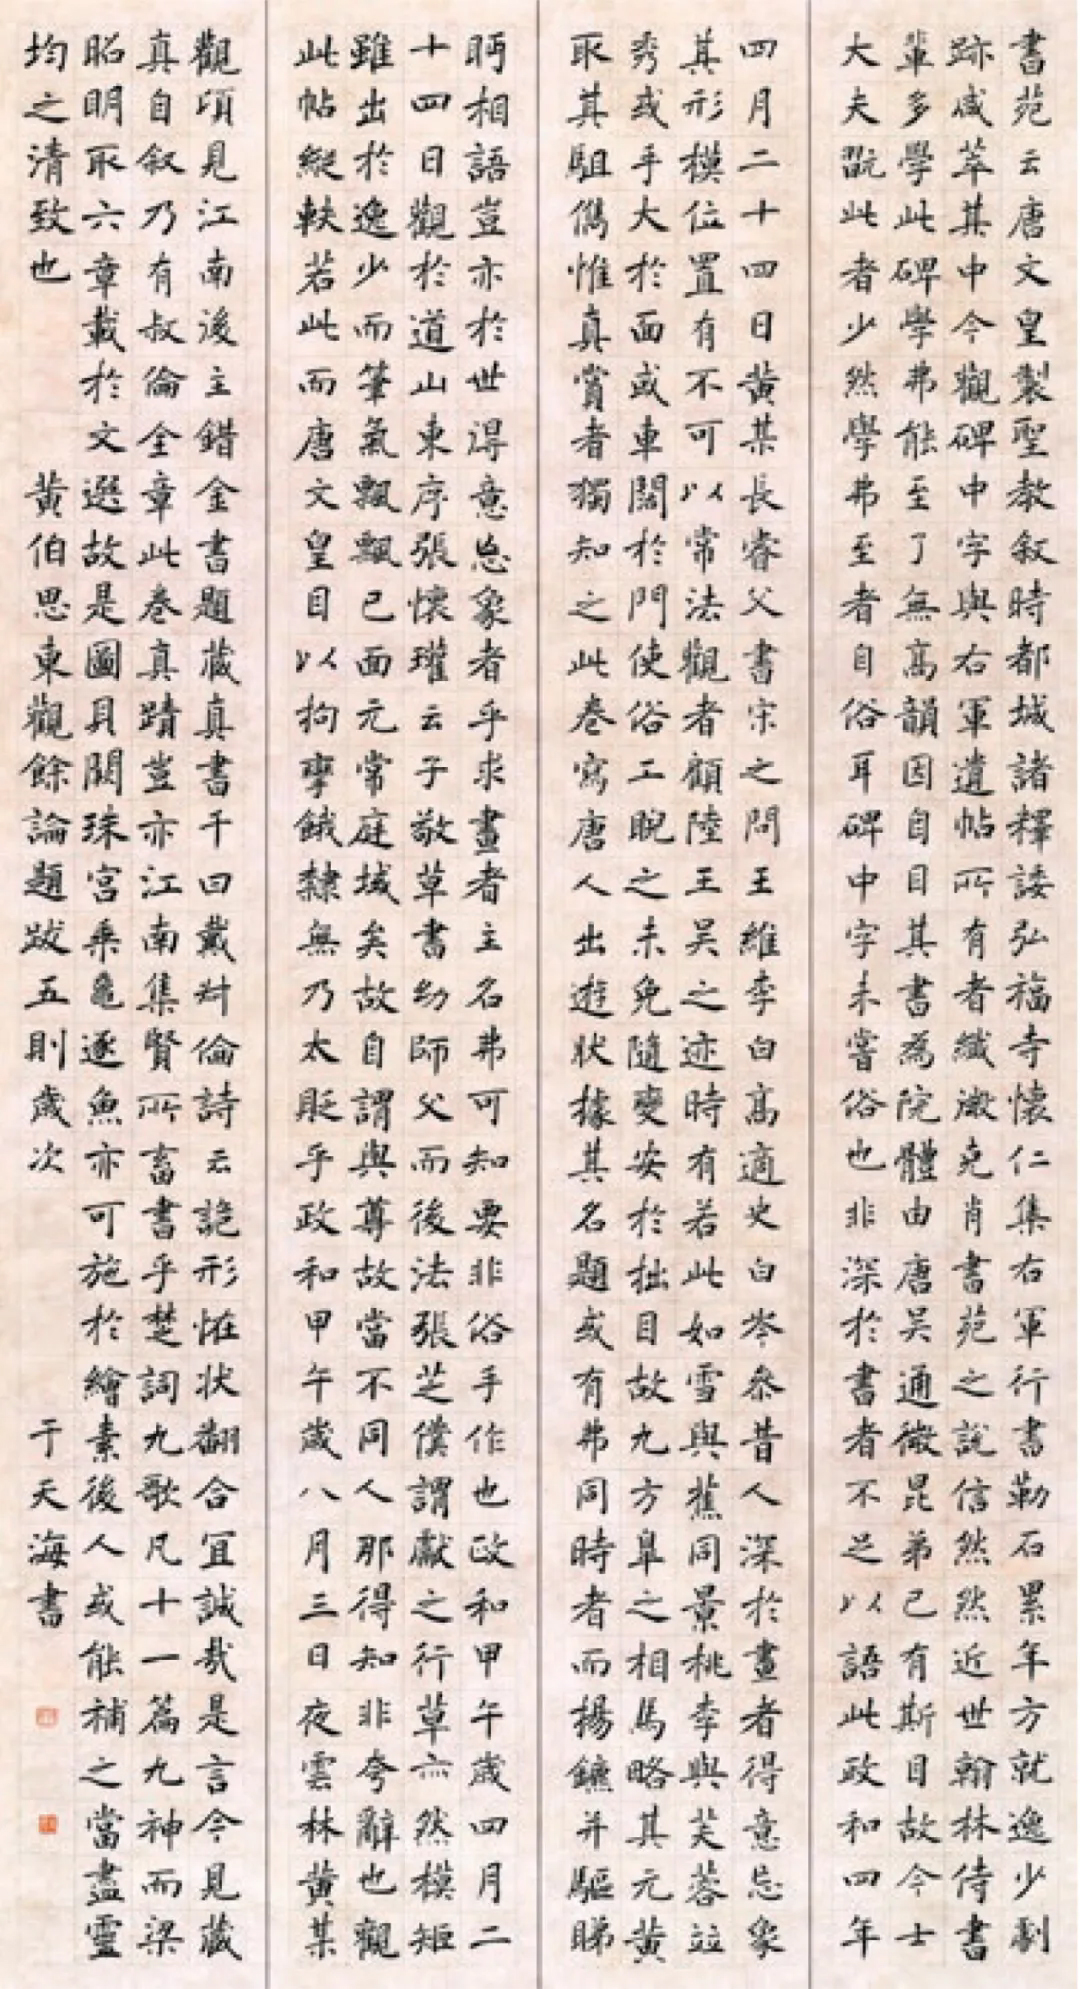 書苑云唐文皇製聖教叙時都城諸釋諉弘福寺懷仁集右軍行書勒石累年方就逸少劇
跡咸萃其中今觀碑中字與右軍遺帖所有者纖微克肖書苑之說信然然近世翰林侍書
輩多學此碑學弗能至了無高韻因自目其書為院體由唐吳通微昆弟已有斯目故今士
大夫翫此者少然學弗至者自俗耳碑中字未嘗俗也非深於書者不足以語此政和四年
四月二十四日黃某長睿父書宋之問王維李白高適史白岑參昔人深於畫者得意忘象
其形模位置有不可以常法觀者顧陸王吳之迹時有若此如雪與蕉同景桃李與芙蓉竝
秀或手大於面或車闊於門使俗工睨之未免隨變安於拙目故九方皐之相馬略其元黃
取其駔儁惟真賞者獨知之此卷寫唐人出遊狀據其名題或有弗同時者而揚鑣并驅睇
眄相語豈亦於世得意忘象者乎求畫者主名弗可知要非俗手作也政和甲午歲四月二
十四日觀於道山東序張懷瓘云子敬草書幼師父而後法張芝僕謂獻之行草亦然模矩
雖出於逸少而筆氣飄飄已面元常庭域矣故自謂與尊故當不同人那得知非夸辭也觀
此帖縱軼若此而唐文皇目以拘攣餓隸無乃太貶乎政和甲午歲八月三日夜雲林黃某
觀頃見江南後主錯金書題藏真書千曰戴叔倫詩云詭形恠狀翻合宜誠哉是言今見藏
真自叙乃有叔倫全章此卷真蹟豈亦江南集賢所畜書乎楚詞九歌凡十一篇九神而梁
昭明取六章載於文選故是圖貝闕珠宮乘黿逐魚亦可施於繪素後人或能補之當盡靈
均之清致也 黃伯思東觀餘論題跋五則歲次 于天海書